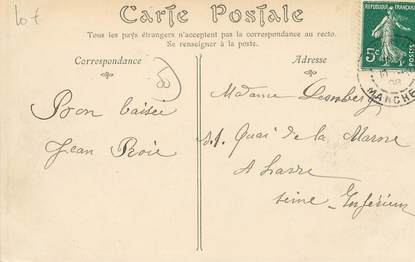 lot
Carte Postale
Tous les pays étrangers n'acceptent pas la correspondance au recto.
Se renseigner à la poste.
Correspondance
Adresse
REPUBLIQUE FRANÇAISE
5c
POSTES
MANCHE
Bon baiser
Jean
Madame
Quai de la Marne
Havre
Seine Inférieure